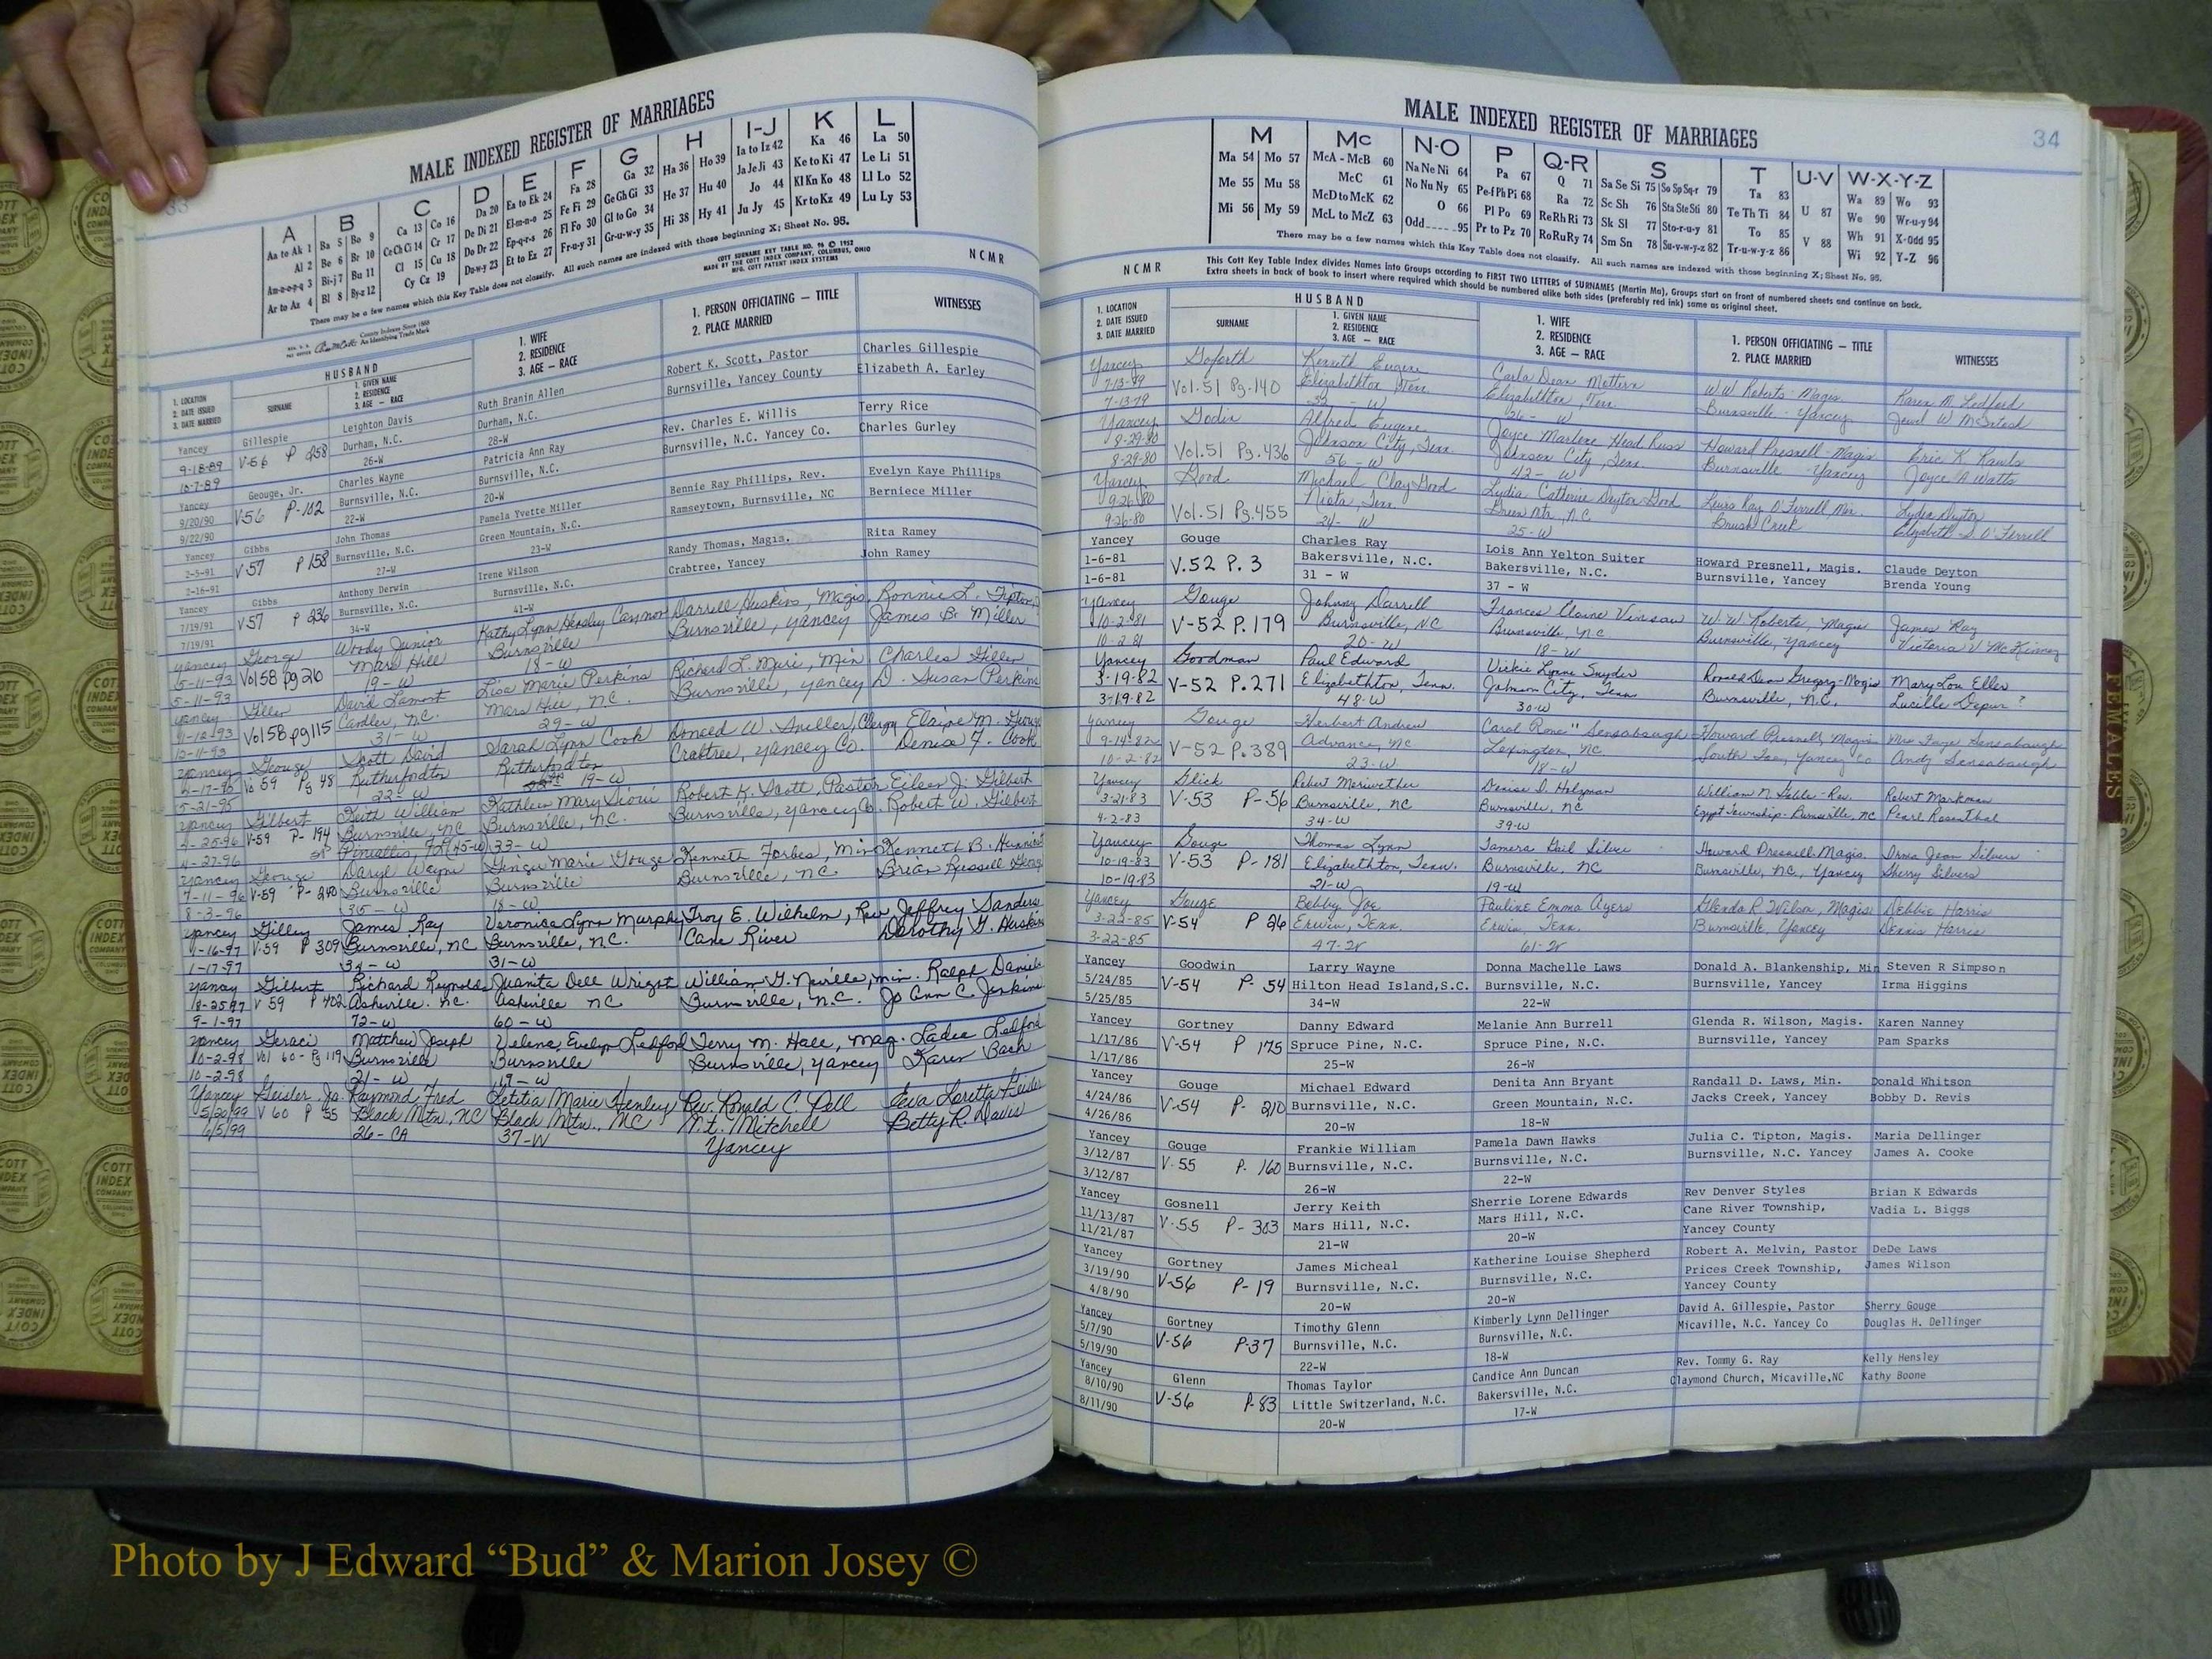 33
MALE INDEXED REGISTER OF MARRIAGES
A B C D E F G H I-J K L
Aa to Ak 1 Ba 5 Bo 9 Ca 13 Co 16 Da 20 Ea to Ek 24 Fa 28 Ga 32 Ha 36 Ho 39 Ia to Iz 42 Ka 46 La 50
Al 2 Be 6 Br 10 Ce Ch Ci 14 Cr 17 De Di 21 El-m-n-o 25 Fe Fi 29 Ge Gh Gi 33 He 37 Hu 40 Ja Je Ji 43 Ke to Ki 47 Le Li 51
Am-n-o-p-q 3 Bi-j 7 Bu 11 Cl 15 Cu 18 Do Dr 22 Ep-q-r-s 26 Fl Fo 30 Gl to Go 34 Hi 38 Hy 41 Jo 44 Kl Kn Ko 48 Ll Lo 52
Ar to Az 4 Bl 8 By-z 12 Cy Cz 19 Du-w-y 23 Et to Ez 27 Fr-u-y 31 Gr-u-w-y 35 Ju Jy 45 Kr to Kz 49 Lu Ly 53
There may be a few names which this Key Table does not classify. All such names are indexed with those beginning X; Sheet No. 95.
COTT SURNAME KEY TABLE NO. 96 © 1952
MADE BY THE COTT INDEX COMPANY, COLUMBUS, OHIO
MFG. COTT PATENT INDEX SYSTEMS
NCMR
County Indexes Since 1888
An Identifying Trade Mark
1. LOCATION
2. DATE ISSUED
3. DATE MARRIED
HUSBAND
SURNAME
1. GIVEN NAME
2. RESIDENCE
3. AGE — RACE
1. WIFE
2. RESIDENCE
3. AGE — RACE
1. PERSON OFFICIATING — TITLE
2. PLACE MARRIED
WITNESSES
Yancey Gillespie Leighton Davis Ruth Branin Allen Robert K. Scott, Pastor Charles Gillespie
9-18-89 V-56 P 258 Durham, N.C. Durham, N.C. Burnsville, Yancey County Elizabeth A. Earley
10-7-89 26-W 28-W
Yancey Geouge, Jr. Charles Wayne Patricia Ann Ray Rev. Charles E. Willis Terry Rice
9/20/90 V56 P-102 Burnsville, N.C. Burnsville, N.C. Burnsville, N.C. Yancey Co. Charles Gurley
9/22/90 22-W 20-W
Yancey Gibbs John Thomas Pamela Yvette Miller Bennie Ray Phillips, Rev. Evelyn Kaye Phillips
2-5-91 V57 P 158 Burnsville, N.C. Green Mountain, N.C. Ramseytown, Burnsville, NC Berniece Miller
2-16-91 27-W 23-W
Yancey Gibbs Anthony Derwin Irene Wilson Randy Thomas, Magis. Rita Ramey
7/19/91 V57 P 236 Burnsville, N.C. Burnsville, N.C. Crabtree, Yancey John Ramey
7/19/91 34-W 41-W
Yancey George Woody Junior Kathy Lynn Hensley Darrell Huskins, Magis Ronnie L. Tipton
5-11-93 Vol 58 pg 26 Mars Hill Burnsville Burnsville, Yancey James B. Miller
5-11-93 19-W 18-W
Yancey David Lamont Lisa Marie Perkins Richard L. Min Charles
11-12-93 Vol 58 pg 115 Candler, N.C. Mars Hill, N.C. Burnsville, Yancey D. Susan Perkins
12-11-93 31-W 29-W
Yancey Geouge Scott David Sarah Lynn Cook Donald W. Clergy Elaine M. Geouge
-17-95 Vo 59 Pg 48 Rutherfordton Rutherfordton Crabtree, Yancey Co. Denise F. Cook
5-21-95 22-W 19-W
Yancey Gilbert Keith William Kathleen Mary Robert K. Scott, Pastor Eileen J. Gilbert
-25-96 V-59 P-194 Burnsville, NC Burnsville, N.C. Burnsville, Yancey Co. Robert W. Gilbert
4-27-96 45-W 33-W
Yancey Geouge Daryl Wayne Ginger Marie Gouge Kenneth Forbes, Min Kenneth B.
7-11-96 V-59 P-240 Burnsville Burnsville Burnsville, N.C. Brian Russell
8-3-96 35-W 18-W
Yancey Gilley James Ray Veronica Lynn Murphy Troy E. Wilhelm, Rev Jeffrey Sanders
1-16-97 V-59 P 309 Burnsville, NC Burnsville, N.C. Cane River Dorothy G. Huskins
1-17-97 34-W 31-W
Yancey Gilbert Richard Reynolds Juanita Dell Wright William G. Neville, min. Ralph Daniels
8-25-97 V 59 P 402 Asheville, NC. Asheville NC Burnsville, N.C. Jo Ann C. Jenkins
9-1-97 72-W 60-W
Yancey Geraci Matthew Joseph Velena Evelyn Ledford Terry M. Hall, Mag. Ledford
10-2-98 Vol 60-Pg 119 Burnsville Burnsville Burnsville, Yancey Karen Bach
10-2-98 21-W 19-W
Yancey Geisler Jr. Raymond Fred Letitia Marie Henley Rev. Ronald C. Pell Eva Loretta Geisler
5/20/99 V 60 P 55 Black Mtn., NC Black Mtn., NC Mt. Mitchell Betty R. Davis
6/5/99 26-CA 37-W Yancey
34
MALE INDEXED REGISTER OF MARRIAGES
M Mc N-O P Q-R S T U-V W-X-Y-Z
Ma 54 Mo 57 McA - McB 60 Na Ne Ni 64 Pa 67 Q 71 Sa Se Si 75 So Sp Sq-r 79 Ta 83 Wa 89 Wo 93
Me 55 Mu 58 McC 61 No Nu Ny 65 Pe-f Ph Pi 68 Ra 72 Sc Sh 76 Sta Ste Sti 80 Te Th Ti 84 U 87 We 90 Wr-u-y 94
Mi 56 My 59 McD to McK 62 O 66 Pl Po 69 Re Rh Ri 73 Sk Sl 77 Sto-r-u-y 81 To 85 Wh 91 X-Odd 95
McL to McZ 63 Odd 95 Pr to Pz 70 Ro Ru Ry 74 Sm Sn 78 Su-v-w-y-z 82 Tr-u-w-y-z 86 V 88 Wi 92 Y-Z 96
There may be a few names which this Key Table does not classify. All such names are indexed with those beginning X; Sheet No. 95.
NCMR
This Cott Key Table Index divides Names into Groups according to FIRST TWO LETTERS of SURNAMES (Martin Ma), Groups start on front of numbered sheets and continue on back.
Extra sheets in back of book to insert where required which should be numbered alike both sides (preferably red ink) same as original sheet.
1. LOCATION
2. DATE ISSUED
3. DATE MARRIED
HUSBAND
SURNAME
1. GIVEN NAME
2. RESIDENCE
3. AGE — RACE
1. WIFE
2. RESIDENCE
3. AGE — RACE
1. PERSON OFFICIATING — TITLE
2. PLACE MARRIED
WITNESSES
Yancey Goforth Kenneth Eugene Carla Dean Mottern W.W. Roberts - Magis. Karen M. Ledford
7-13-79 Vol. 51 Pg. 140 Elizabethton, Tenn. Elizabethton, Tenn. Burnsville - Yancey Jewel W McIntosh
7-13-79 33-W 26-W
Yancey Godin Alfred Eugene Joyce Marlene Head Russ Howard Presnell - Magis Eric K. Rawls
8-29-80 Vol. 51 Pg. 436 Johnson City, Tenn. Johnson City, Tenn. Burnsville - Yancey Joyce A Watts
8-29-80 56-W 42-W
Yancey Good Michael Clay Good Lydia Catherine Deyton Good Lewis Ray O'Ferrell, Min. Lydia Deyton
9-26-80 Vol. 51 Pg. 455 Niota, Tenn. Green Mtn., N.C. Brush Creek Elizabeth S. O'Ferrell
9-26-80 24-W 25-W
Yancey Gouge Charles Ray Lois Ann Yelton Suiter Howard Presnell, Magis. Claude Deyton
1-6-81 V.52 P. 3 Bakersville, N.C. Bakersville, N.C. Burnsville, Yancey Brenda Young
1-6-81 31 - W 37 - W
Yancey Gouge Johnny Darrell Frances Elaine Vinson W.W. Roberts, Magis James Ray
10-2-81 V-52 P. 179 Burnsville, NC Burnsville, N.C. Burnsville, Yancey Victoria V. McKinney
10-2-81 20-W 18-W
Yancey Goodman Paul Edward Vickie Lynne Snyder Ronald Dean Gregory - Magis Mary Lou Eller
3-19-82 V-52 P. 271 Elizabethton, Tenn. Johnson City, Tenn Burnsville, N.C. Lucille Depur ?
3-19-82 48-W 30-W
Yancey Gouge Herbert Andrew Carol Rone" Sensabaugh Howard Presnell, Magis Mrs Faye Sensabaugh
9-19-82 V-52 P. 389 Advance, NC Lexington, NC South Toe, Yancey Co Andy Sensabaugh
10-2-82 23-W 18-W
Yancey Glick Robert Meriwether Denise D. Holzman William N. Rev. Robert Markman
3-21-83 V-53 P-56 Burnsville, NC Burnsville, NC Egypt Township - Burnsville, NC Pearl Rosenthal
4-2-83 34-W 39-W
Yancey Gouge Thomas Lynn Tamera Gail Silver Howard Presnell - Magis. Irma Jean Silver
10-19-83 V-53 P-181 Elizabethton, Tenn. Burnsville, NC Burnsville, NC, Yancey Sherry Silvers
10-19-83 21-W 19-W
Yancey Gouge Bobby Joe Pauline Emma Ayers Glenda R. Wilson, Magis Debbie Harris
3-22-85 V-54 P 26 Erwin, Tenn. Erwin, Tenn. Burnsville, Yancey Dennis Harris
3-22-85 47-W 61-W
Yancey Goodwin Larry Wayne Donna Machelle Laws Donald A. Blankenship, Min Steven R Simpson
5/24/85 V-54 P. 54 Hilton Head Island,S.C. Burnsville, N.C. Burnsville, Yancey Irma Higgins
5/25/85 34-W 22-W
Yancey Gortney Danny Edward Melanie Ann Burrell Glenda R. Wilson, Magis. Karen Nanney
1/17/86 V-54 P 175 Spruce Pine, N.C. Spruce Pine, N.C. Burnsville, Yancey Pam Sparks
1/17/86 25-W 26-W
Yancey Gouge Michael Edward Denita Ann Bryant Randall D. Laws, Min. Donald Whitson
4/24/86 V-54 P- 210 Burnsville, N.C. Green Mountain, N.C. Jacks Creek, Yancey Bobby D. Revis
4/26/86 20-W 18-W
Yancey Gouge Frankie William Pamela Dawn Hawks Julia C. Tipton, Magis. Maria Dellinger
3/12/87 V-55 P. 160 Burnsville, N.C. Burnsville, N.C. Burnsville, N.C. Yancey James A. Cooke
3/12/87 26-W 22-W
Yancey Gosnell Jerry Keith Sherrie Lorene Edwards Rev Denver Styles Brian K Edwards
11/13/87 V-55 P-303 Mars Hill, N.C. Mars Hill, N.C. Cane River Township, Vadia L. Biggs
11/21/87 21-W 20-W Yancey County
Yancey Gortney James Micheal Katherine Louise Shepherd Robert A. Melvin, Pastor DeDe Laws
3/19/90 V-56 P-19 Burnsville, N.C. Burnsville, N.C. Prices Creek Township, James Wilson
4/8/90 20-W 20-W Yancey County
Yancey Gortney Timothy Glenn Kimberly Lynn Dellinger David A. Gillespie, Pastor Sherry Gouge
5/7/90 V-56 P-37 Burnsville, N.C. Burnsville, N.C. Micaville, N.C. Yancey Co Douglas H. Dellinger
5/19/90 22-W 18-W
Yancey Glenn Thomas Taylor Candice Ann Duncan Rev. Tommy G. Ray Kelly Hensley
8/10/90 V-56 P-83 Little Switzerland, N.C. Bakersville, N.C. Claymond Church, Micaville,NC Kathy Boone
8/11/90 20-W 17-W
FEMALES
COTT INDEX COMPANY
Photo by J Edward “Bud” & Marion Josey ©